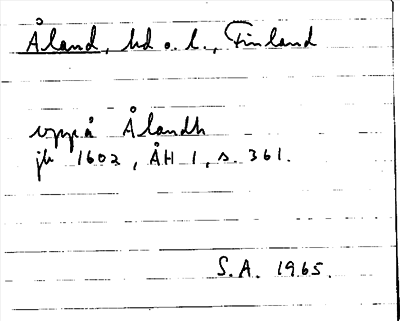 Åland, hd o. l., Finland
uppå Ålandh
jb 1602, ÅH 1, s. 361.
S.A. 1965.